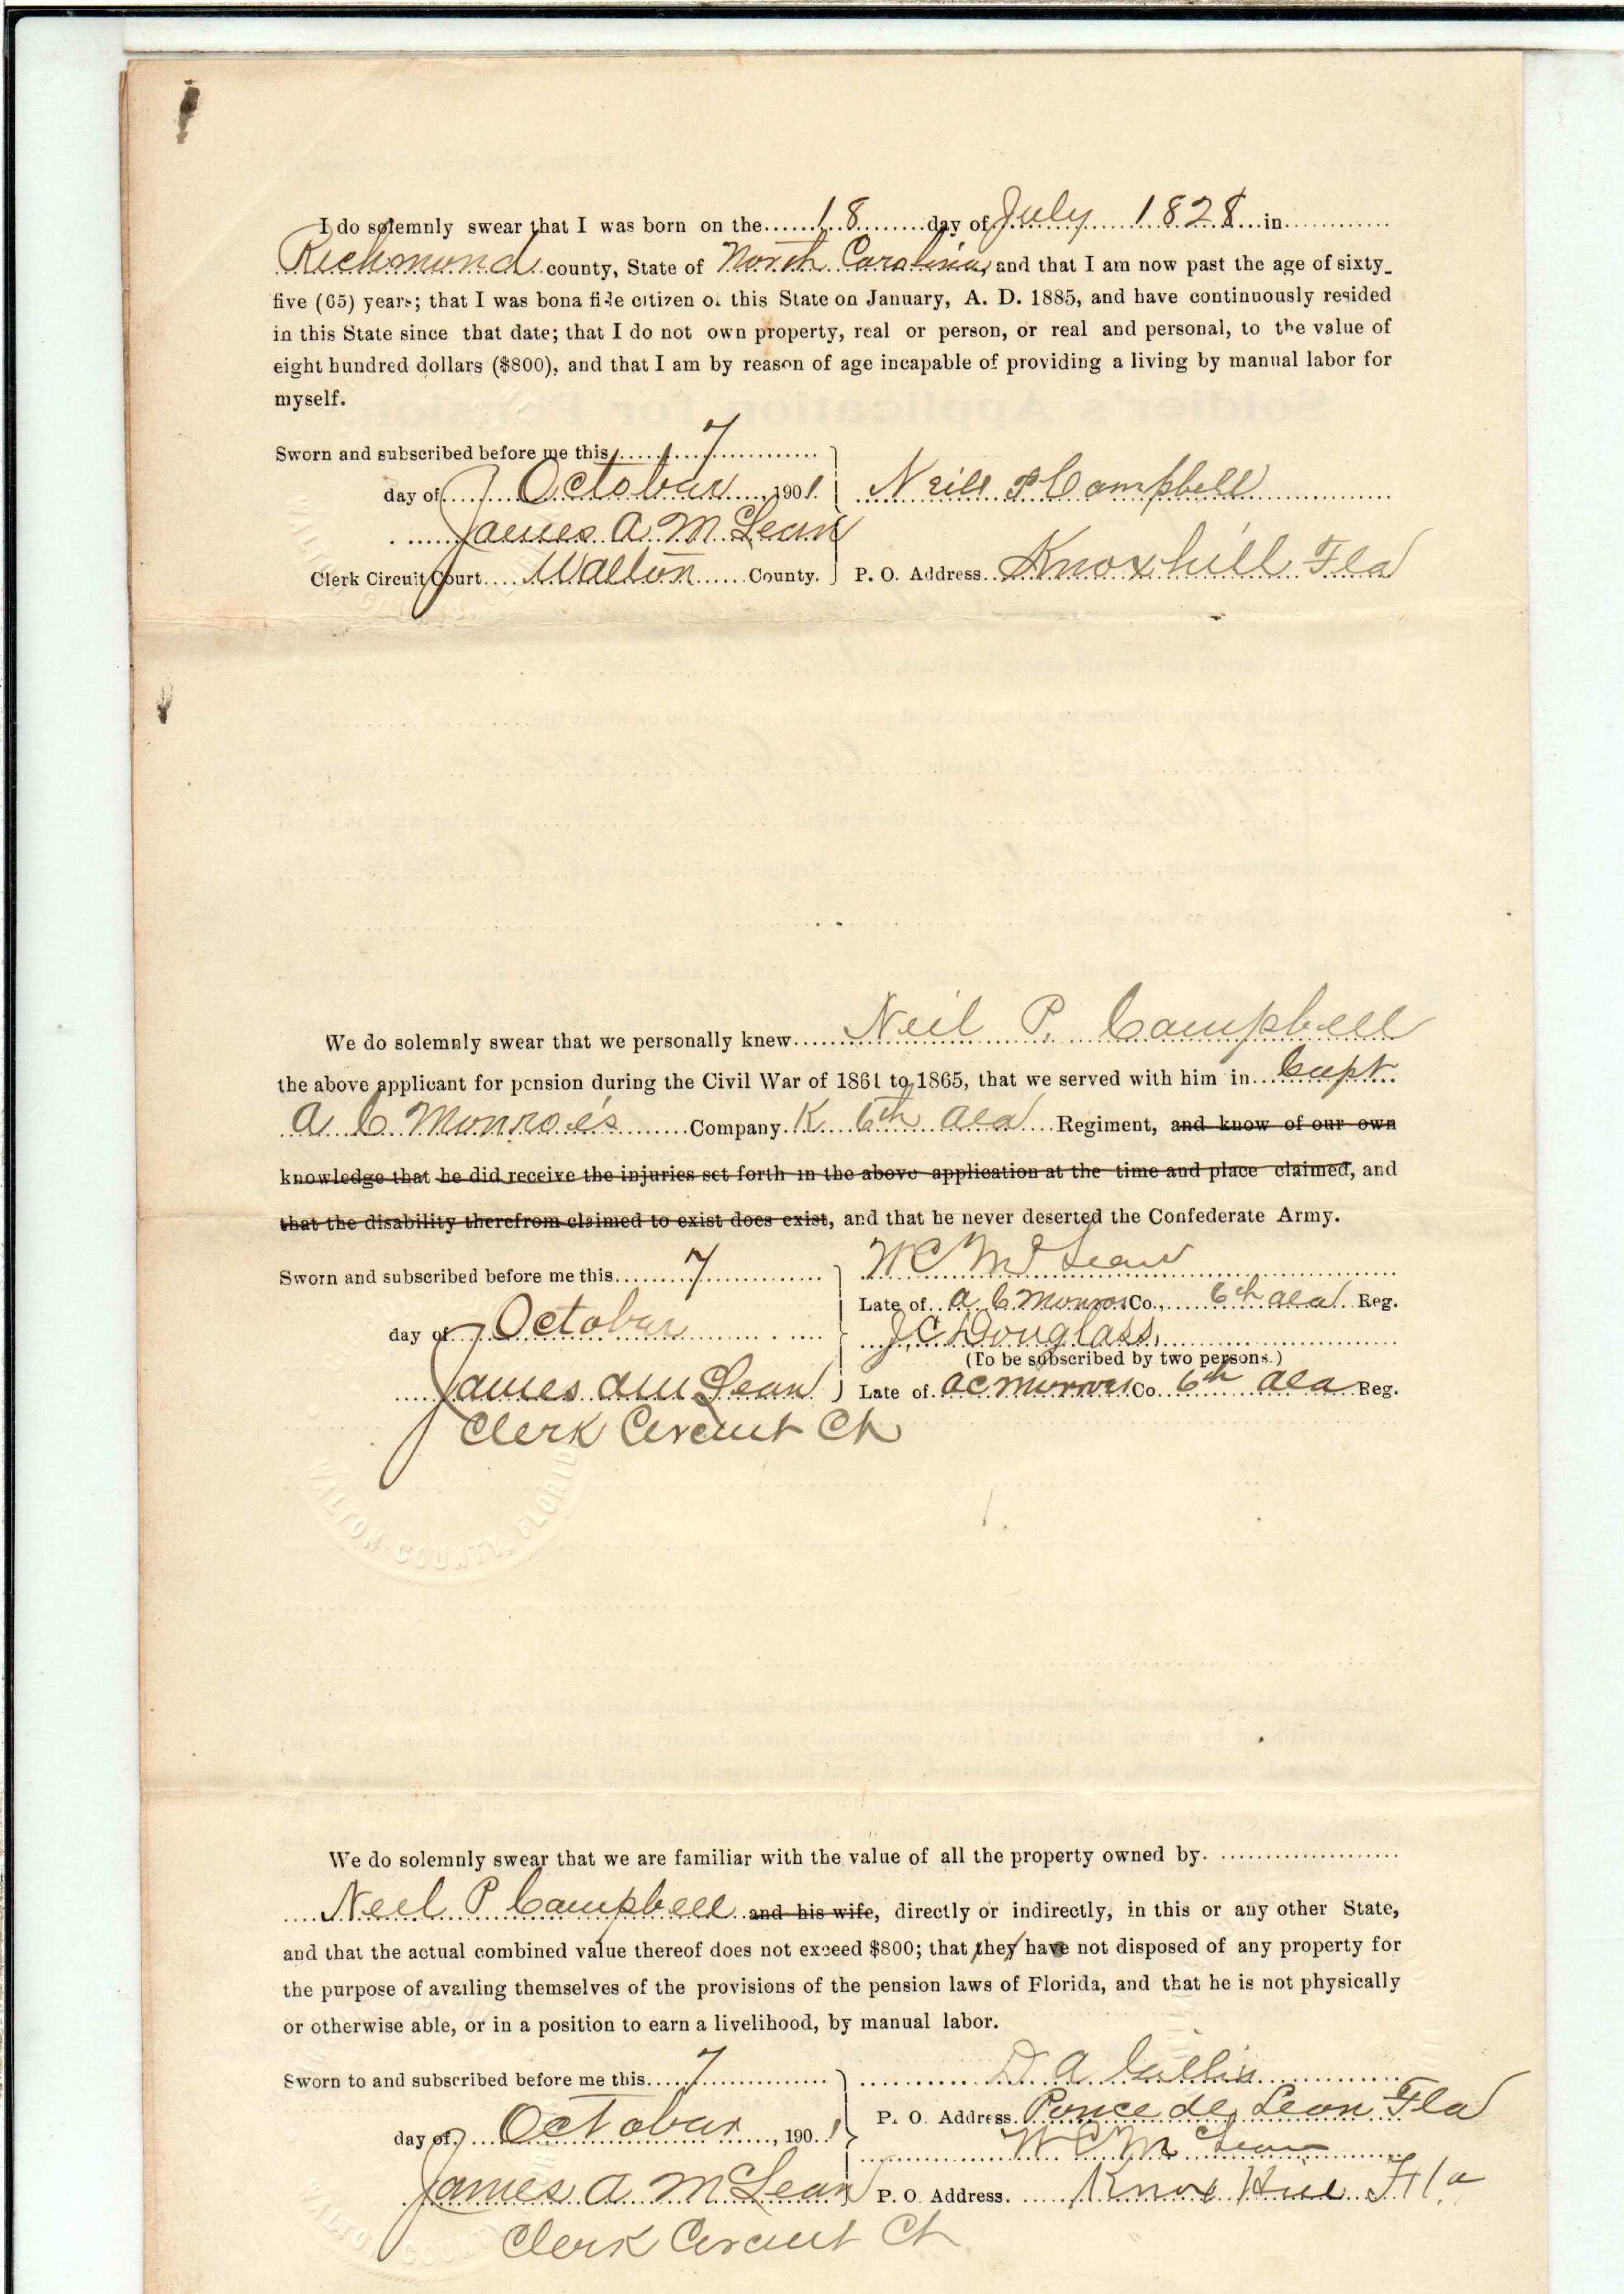 I do solemnly swear that I was born on the 18 day of July 1828 in
Richmond county, State of North Carolina, and that I am now past the age of sixty-
five (65) years; that I was bona fide citizen of this State on January, A. D. 1885, and have continuously resided
in this State since that date; that I do not own property, real or person, or real and personal, to the value of
eight hundred dollars ($800), and that I am by reason of age incapable of providing a living by manual labor for
myself.
Sworn and subscribed before me this 7
day of October, 1901. Neill P Campbell
James A. McLean
Clerk Circuit Court Walton County. P. O. Address Knoxhill Fla
We do solemnly swear that we personally knew Neil P. Campbell
the above applicant for pension during the Civil War of 1861 to 1865, that we served with him in Capt
A. C Monroe's Company K 6th Ala Regiment, and know of our own
knowledge that he did receive the injuries set forth in the above application at the time and place claimed, and
that the disability therefrom claimed to exist does exist, and that he never deserted the Confederate Army.
Sworn and subscribed before me this 7 W C McLean
Late of A. C. Monroes Co., 6th Ala Reg.
day of October J C Douglass
(To be subscribed by two persons.)
James A McLean Late of A C Monroes Co. 6th Ala Reg.
Clerk Circuit Ct
WALTON COUNTY, FLORIDA
We do solemnly swear that we are familiar with the value of all the property owned by
Neil P Campbell and his wife, directly or indirectly, in this or any other State,
and that the actual combined value thereof does not exceed $800; that they have not disposed of any property for
the purpose of availing themselves of the provisions of the pension laws of Florida, and that he is not physically
or otherwise able, or in a position to earn a livelihood, by manual labor.
Sworn to and subscribed before me this 7 D A
P. O. Address. Ponce de Leon Fla
day of October, 1901 W C McLean
James A McLean P. O. Address. Knox Hill Fla
Clerk Circuit Ct